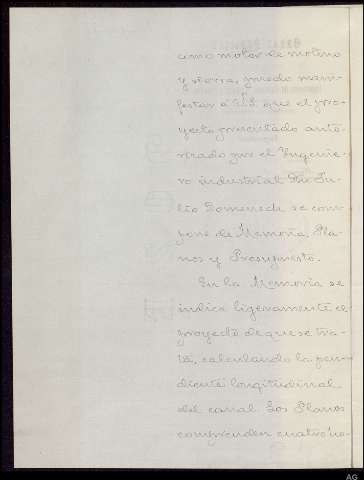 como motor de molino
y sierra, puedo mani-
festar á V.S. que el pro-
yecto presentado auto-
rizado por el Ingenie-
ro industrial Dn Ju-
lio Domenech se com-
pone de Memoria, Pla-
nos y Presupuesto.
En la Memoria se
indica ligeramente el
proyecto de que se tra-
ta, calculando la pen-
diente longitudinal
del canal. Los Planos
comprenden cuatro ho-
AG